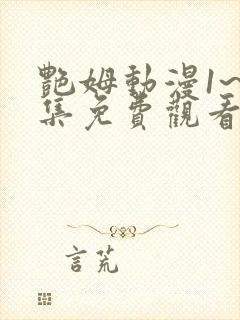 艷姆動漫1~
集免費觀看
言荒